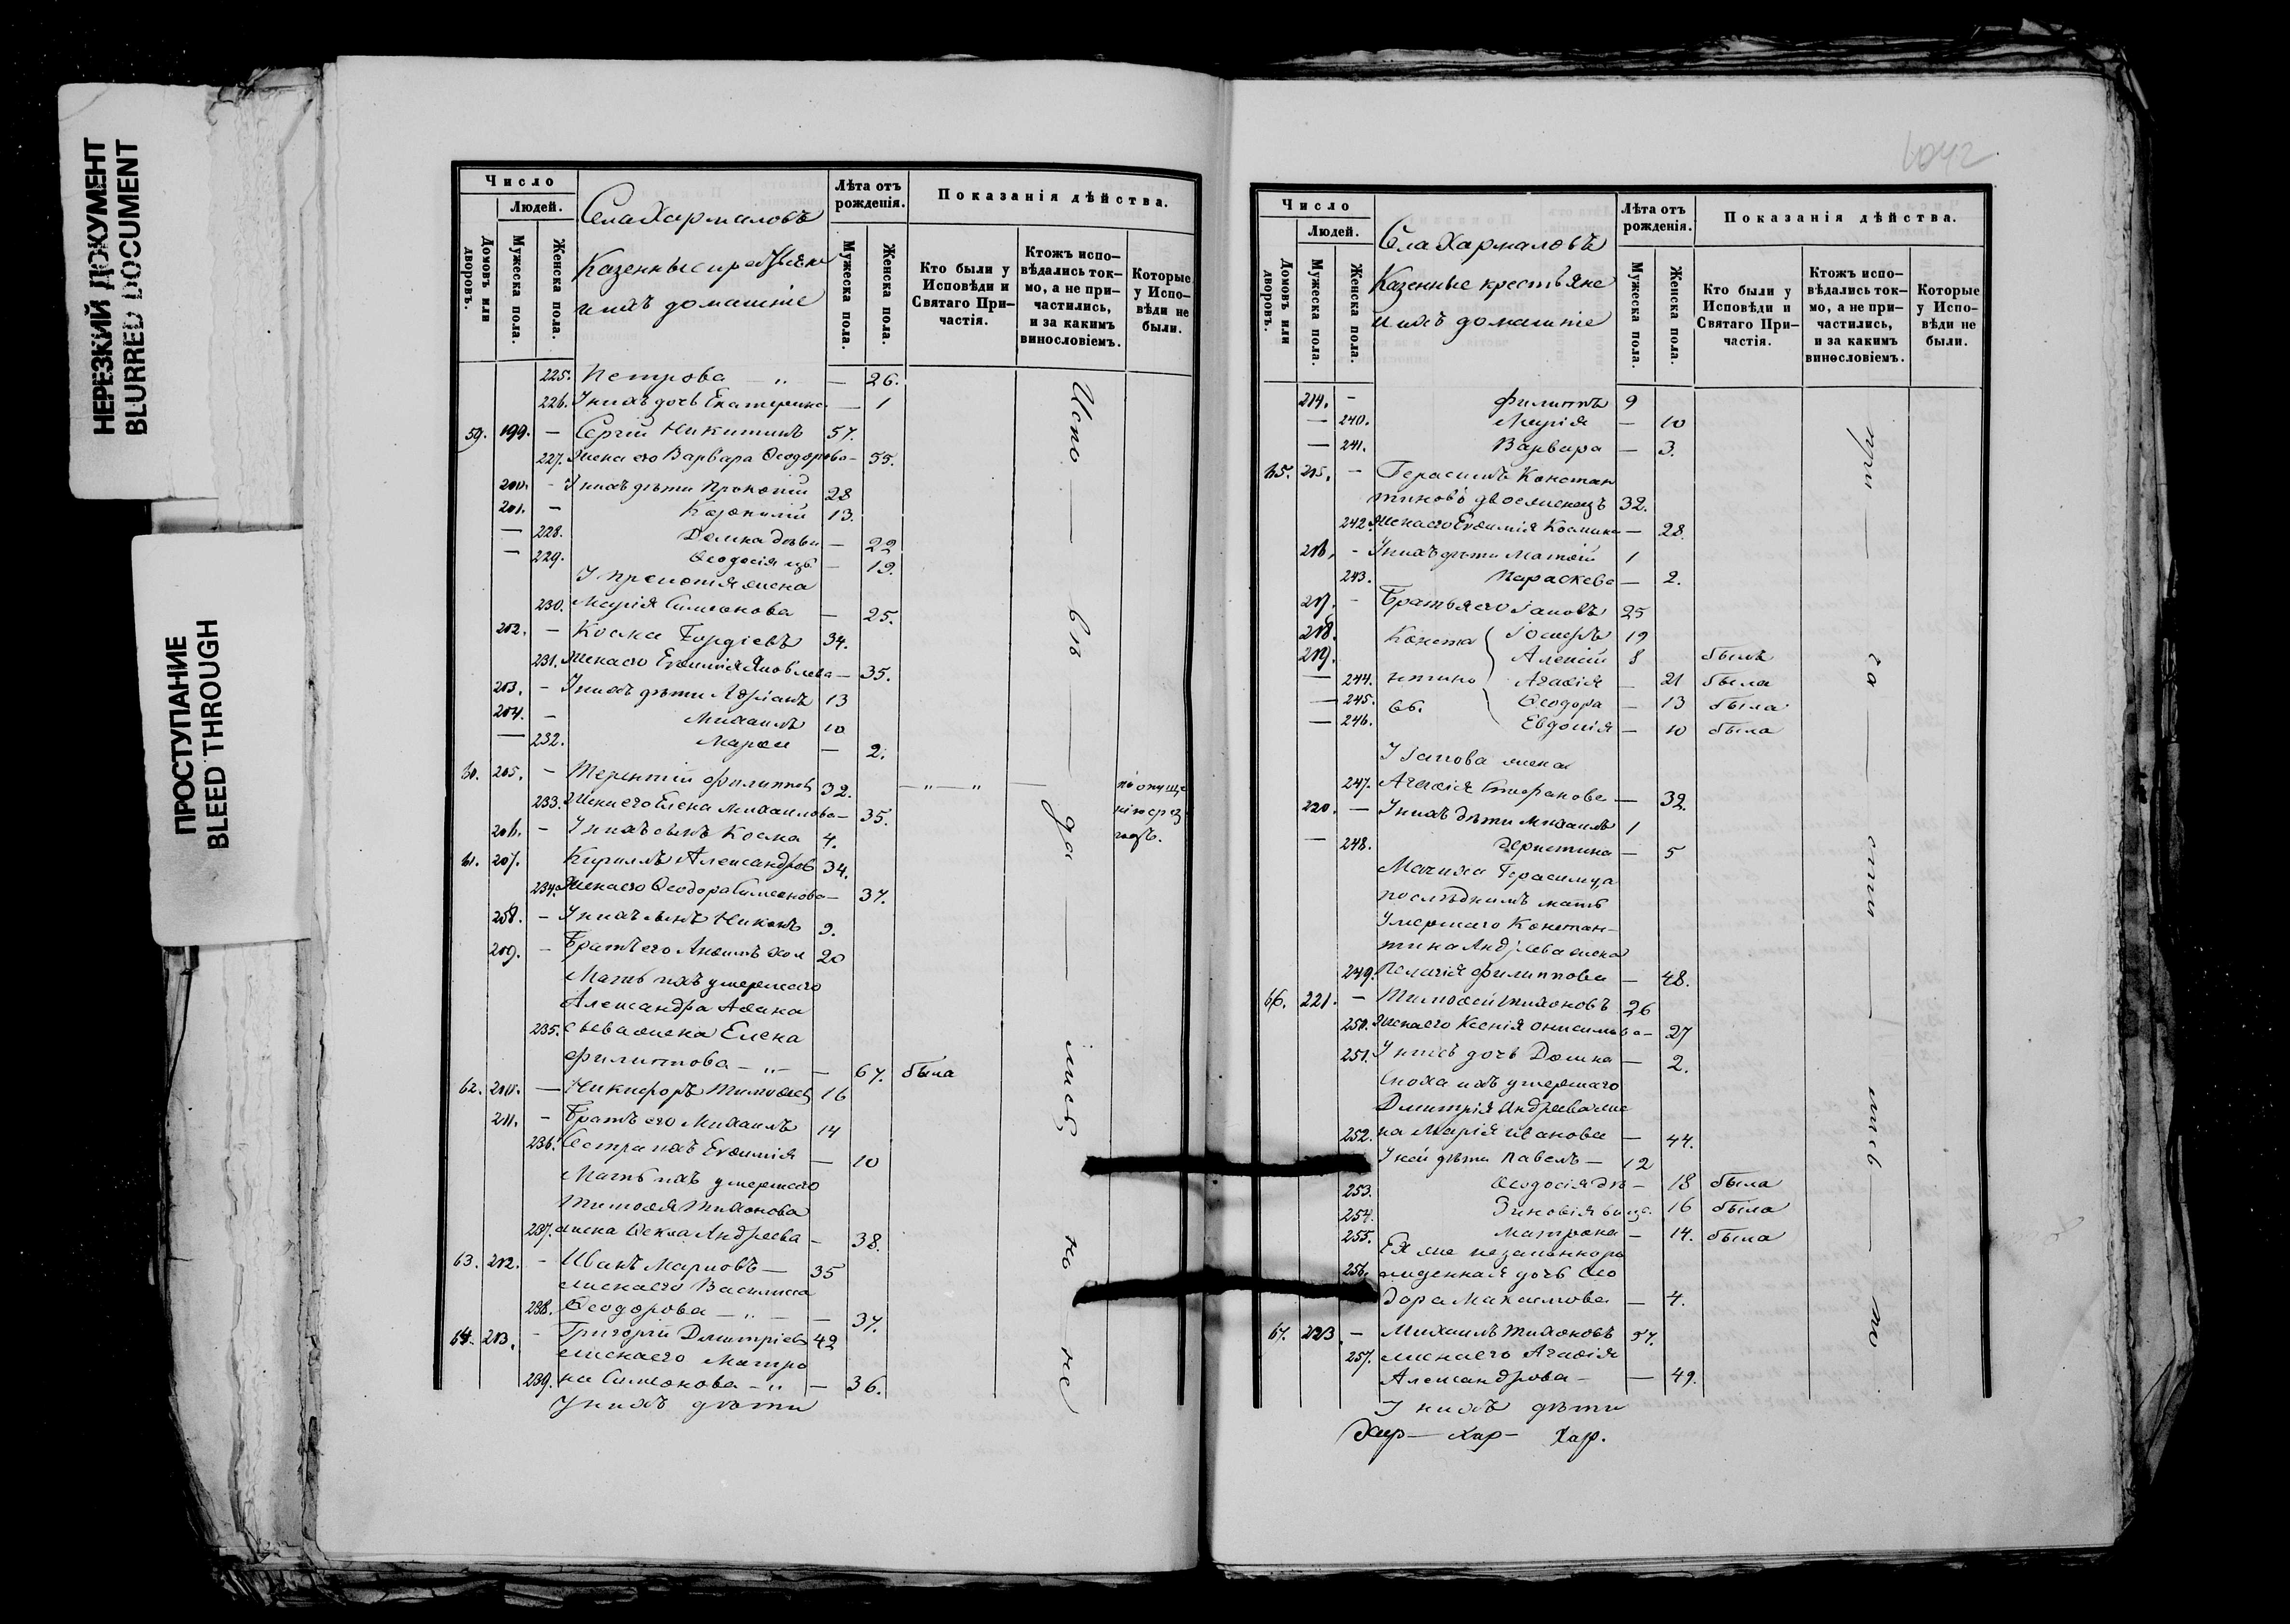 НЕРЕЗКИЙ ДОКУМЕНТ
BLURRED DOCUMENT
ПРОСТУПАНИЕ
BLEED THROUGH
Число
Людей.
Домовъ или дворовъ.
Мужеска пола.
Женска пола.
Села Хармаловъ
Казенные крестьяне
и ихъ домашніе
Лѣта отъ рожденія.
Мужеска пола.
Женска пола.
Показанія дѣйства.
Кто были у Исповѣди и Святаго Причастія.
Ктожъ исповѣдались токмо, а не причастились, и за какимъ винословіемъ.
Которые у Исповѣди не были.
225. Петрова — „ — 26.
226. У нихъ дочь Екатерина — 1
59. 199. — Сергій Никитинъ 57.
227. Жена его Варвара Ѳеодорова — 55.
200. — У нихъ дѣти Прокопій 28
201. — 13.
— 228. Домна дѣви — 22
— 229. Ѳеодосія — 19.
У жена
230. Марія Симеонова — 25.
202. — Косма Гордіевъ 34.
231. Жена его Евѳимія Яковлева — 35.
203. — У нихъ дѣти Адріанъ 13
204. — Михаилъ 10
— 232. Марѳа — 2.
60. 205. — Терентій Филиповъ 32. — „ — „ —
233. Жена его Елена Михаилова — 35.
206. — У нихъ сынъ Косма 4.
61. 207. Кириллъ Александров 34.
234. Жена его Ѳеодора Симеонова — 37.
208. — У нихъ сынъ Никонъ 9.
209. — Братъ его Анѳимъ хол 20
Мать ихъ умершаго
Александра
235. жена Елена
Филиппова — „ — — 67. была
62. 210. — Никифоръ Тимоѳеев 16
211. — Братъ его Михаилъ 14
236. Сестра ихъ Евѳимія — 10
Мать ихъ умершаго
Тимоѳея Тихонова
237. жена Ѳекла Андреева — 38.
63. 212. — Иванъ Марковъ — 35
жена его Василиса
238. Ѳеодорова — „ — — 37.
64. 213. — Григорій Димитріев 42
жена его Матро
239. на Симеонова — „ — 36.
У нихъ дѣти
Испо — вѣ — да — лись но не
1042
Число
Людей.
Домовъ или дворовъ.
Мужеска пола.
Женска пола.
Села Хармаловъ
Казенные крестьяне
и ихъ домашніе
Лѣта отъ рожденія.
Мужеска пола.
Женска пола.
Показанія дѣйства.
Кто были у Исповѣди и Святаго Причастія.
Ктожъ исповѣдались токмо, а не причастились, и за какимъ винословіемъ.
Которые у Исповѣди не были.
214. — Филиппъ 9
— 240. Марія — 10
— 241. Варвара — 3.
65. 215. — Герасимъ Констан
тиновъ двоеженецъ 32.
242. Жена его Евѳимія Космина — 28.
216. — У нихъ дѣти Матѳій 1
243. Параскева — 2.
217. — Братья его Іаковъ 25
218. Конста Іосифъ 19
219. Алексій 8 былъ
— 244. нтино Агаѳія — 21 была
— 245. вы. Ѳеодора — 13 была
— 246. Евдокія — 10 была
У Іакова жена
247. Агаѳія Стефанова — 32.
220. — У нихъ дѣти Михаилъ 1
— 248. Христина — 5
Мачиха Герасима,
послѣднимъ мать
умершаго Констан-
тина Андреева жена
249. Пелагія Филиппова — 48.
66. 221. — Тимоѳей Тихоновъ 26
250. Жена его Ксенія Онисимова — 27
251. У нихъ дочь Домна — 2.
Сноха ихъ умершаго
Димитрія Андреева же
252. на Марія Иванова — 44.
У ней дѣти Павелъ — 12
253. Ѳеодосія дѣ — 18 была
254. Зиновія вица. 16 была
255. Матрона — 14. была
Ея же незаконноро
256. жденная дочь Ѳео
дора Максимова — 4.
67. 223. — Михаилъ Тихоновъ 57.
257. жена его Агаѳія
Александрова — — 49.
У нихъ дѣти
Хар — Хар — Хар.
при — ча — сти — лись — по